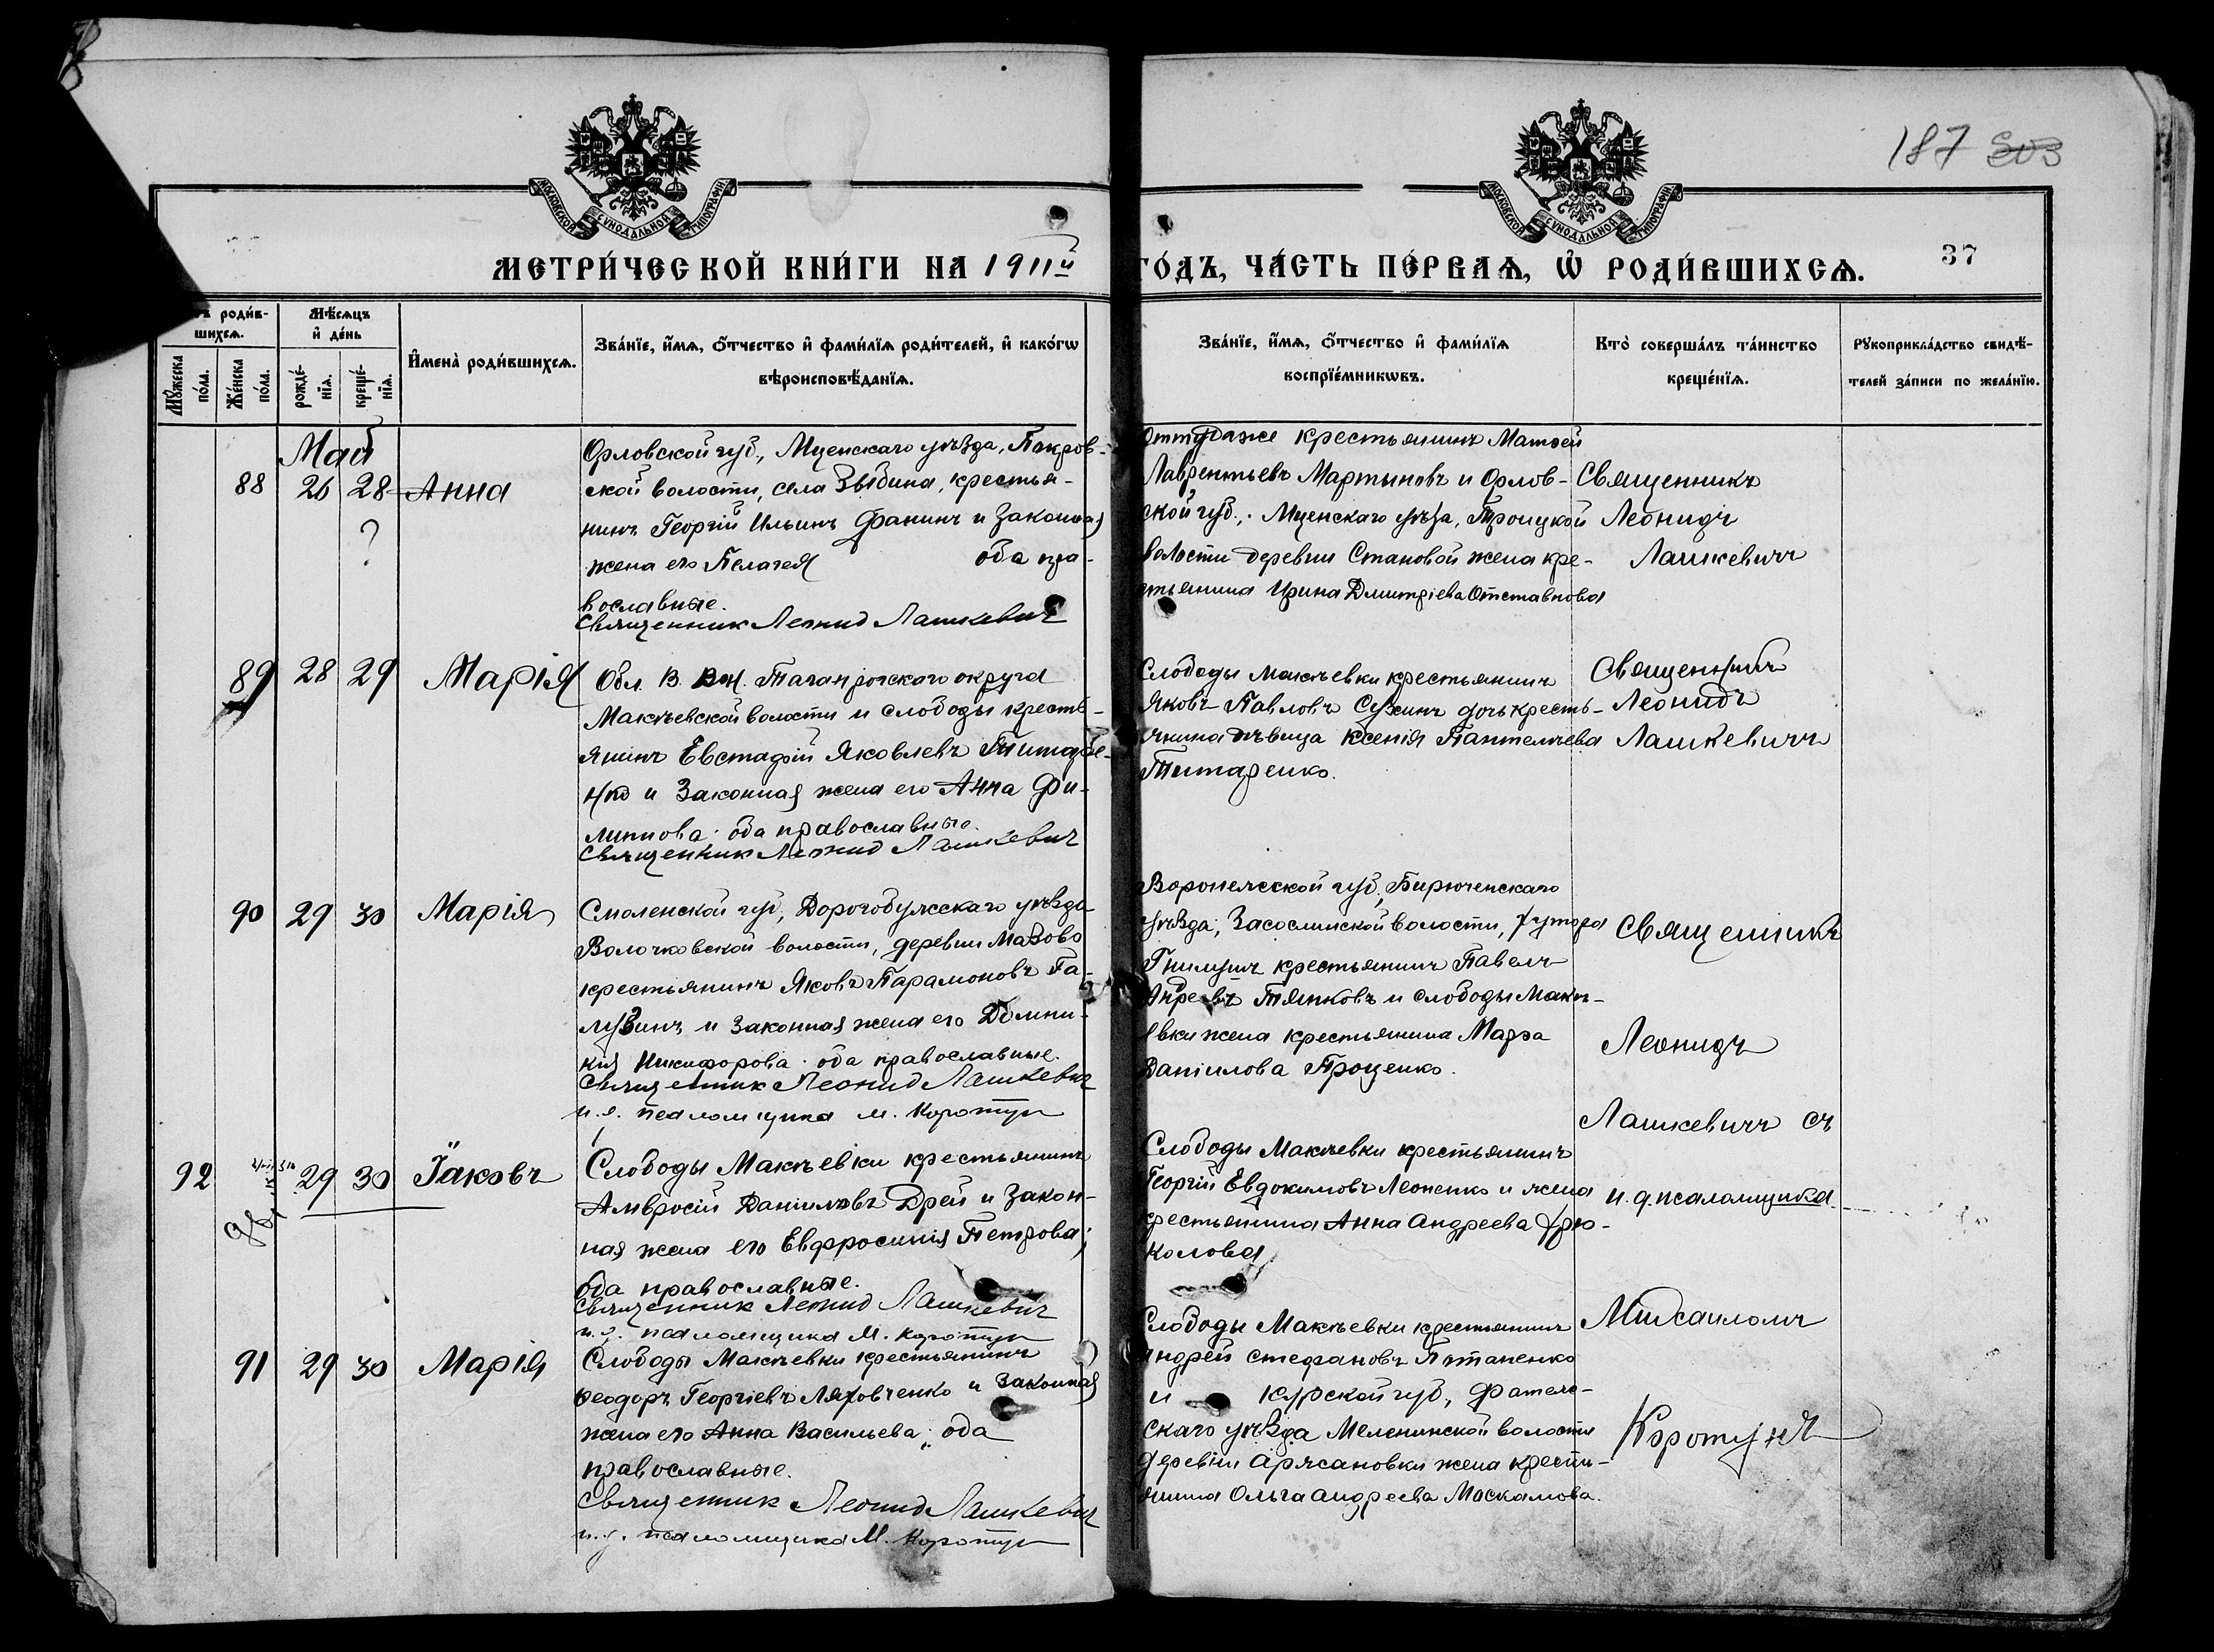 187 303
МОСКОВСКОЙ СѴНОДАЛЬНОЙ ТИПОГРАФІИ
МОСКОВСКОЙ СѴНОДАЛЬНОЙ ТИПОГРАФІИ
МЕТРИ́ЧЕСКОЙ КНИ́ГИ НА 1911й
ГО́ДЪ, ЧА́СТЬ ПЕ́РВАѦ, Ѡ҆ РОДИ́ВШИХСѦ.
37
роди́в-
шихсѧ.
Мꙋ́жеска по́ла.
Же́нска по́ла.
Мѣ́сѧцъ
и҆ де́нь
рожде́-
нїѧ.
креще́-
нїѧ.
И҆мена̀ роди́вшихсѧ.
Зва́нїе, и҆́мѧ, ѻ҆́тчество и҆ фами́лїѧ роди́телей, и҆ како́гѡ
вѣроисповѣ́данїѧ.
Зва́нїе, и҆́мѧ, ѻ҆́тчество и҆ фами́лїѧ
воспрїе́мникѡвъ.
Кто̀ соверша́лъ та́инство
креще́нїѧ.
Рꙋкоприкла́дство свидѣ́-
телей за́писи по жела́нїю.
Май
88 26 28 Анна
?
Орловской губ., Мценскаго уѣзда, Покров-
ской волости, села Зыбина, крестья-
нинъ Георгій Ильинъ Фанинъ и законная
жена его Пелагея оба пра-
вославные.
Священник Леонид Лашкевич
Оттуда же крестьянинъ Матѳей
Лаврентьевъ Мартыновъ и Орлов-
ской губ., Мценскаго уѣзда, Троицкой
волости деревни Становой жена кре-
стьянина Ирина Дмитріева Отставнова
Священникъ
Леонидъ
Лашкевичъ
89 28 29 Марія
Обл. В. Вой. Таганрогскаго округа
Макѣевской волости и слободы кресть-
янинъ Евстафій Яковлевъ Титаре-
нко и законная жена его Анна Фи-
липпова; оба православные.
Священник Леонид Лашкевич
Слободы Макѣевки крестьянинъ
Яковъ Павловъ дочь кресть-
янина дѣвица Ксенія Пантелѣева
Титаренко.
Священникъ
Леонидъ
Лашкевичъ
90 29 30 Марія
Смоленской губ., Дорогобужскаго уѣзда
Волочковской волости, деревни Мазово
крестьянинъ Яковъ Парамоновъ Га-
лузинъ и законная жена его Домни-
кія Никифорова; оба православные.
Священник Леонид Лашкевич
и. д. псаломщика М. Коротун
Воронежской губ., Бирюченскаго
уѣзда, Засосинской волости, хутора
крестьянинъ Павелъ
Тяпковъ и слободы Макѣ-
евки жена крестьянина Марѳа
Даніилова Проценко.
Священникъ
Леонидъ
Лашкевичъ съ
и. д. псаломщика
Михаиломъ
Коротунъ
92 29 30 Іаковъ
Слободы Макѣевки крестьянинъ
Амвросій Даніиловъ Дрей и закон-
ная жена его Евфросинія Петрова;
оба православные.
Священник Леонид Лашкевич
и. д. псаломщика М. Коротун
Слободы Макѣевки крестьянинъ
Георгій Евдокимовъ Леоненко и жена
крестьянина Анна Андреева Хрю-
колова
91 29 30 Марія
Слободы Макѣевки крестьянинъ
Ѳеодоръ Георгіевъ Ляховченко и законная
жена его Анна Васильева; оба
православные.
Священник Леонид Лашкевич
и. д. псаломщика М. Коротун
Слободы Макѣевки крестьянинъ
Андрей Стефановъ Потапенко
и Курской губ., Фатеж-
скаго уѣзда Меленинской волости
деревни жена кресть-
янина Ольга Андреева Маскалова.